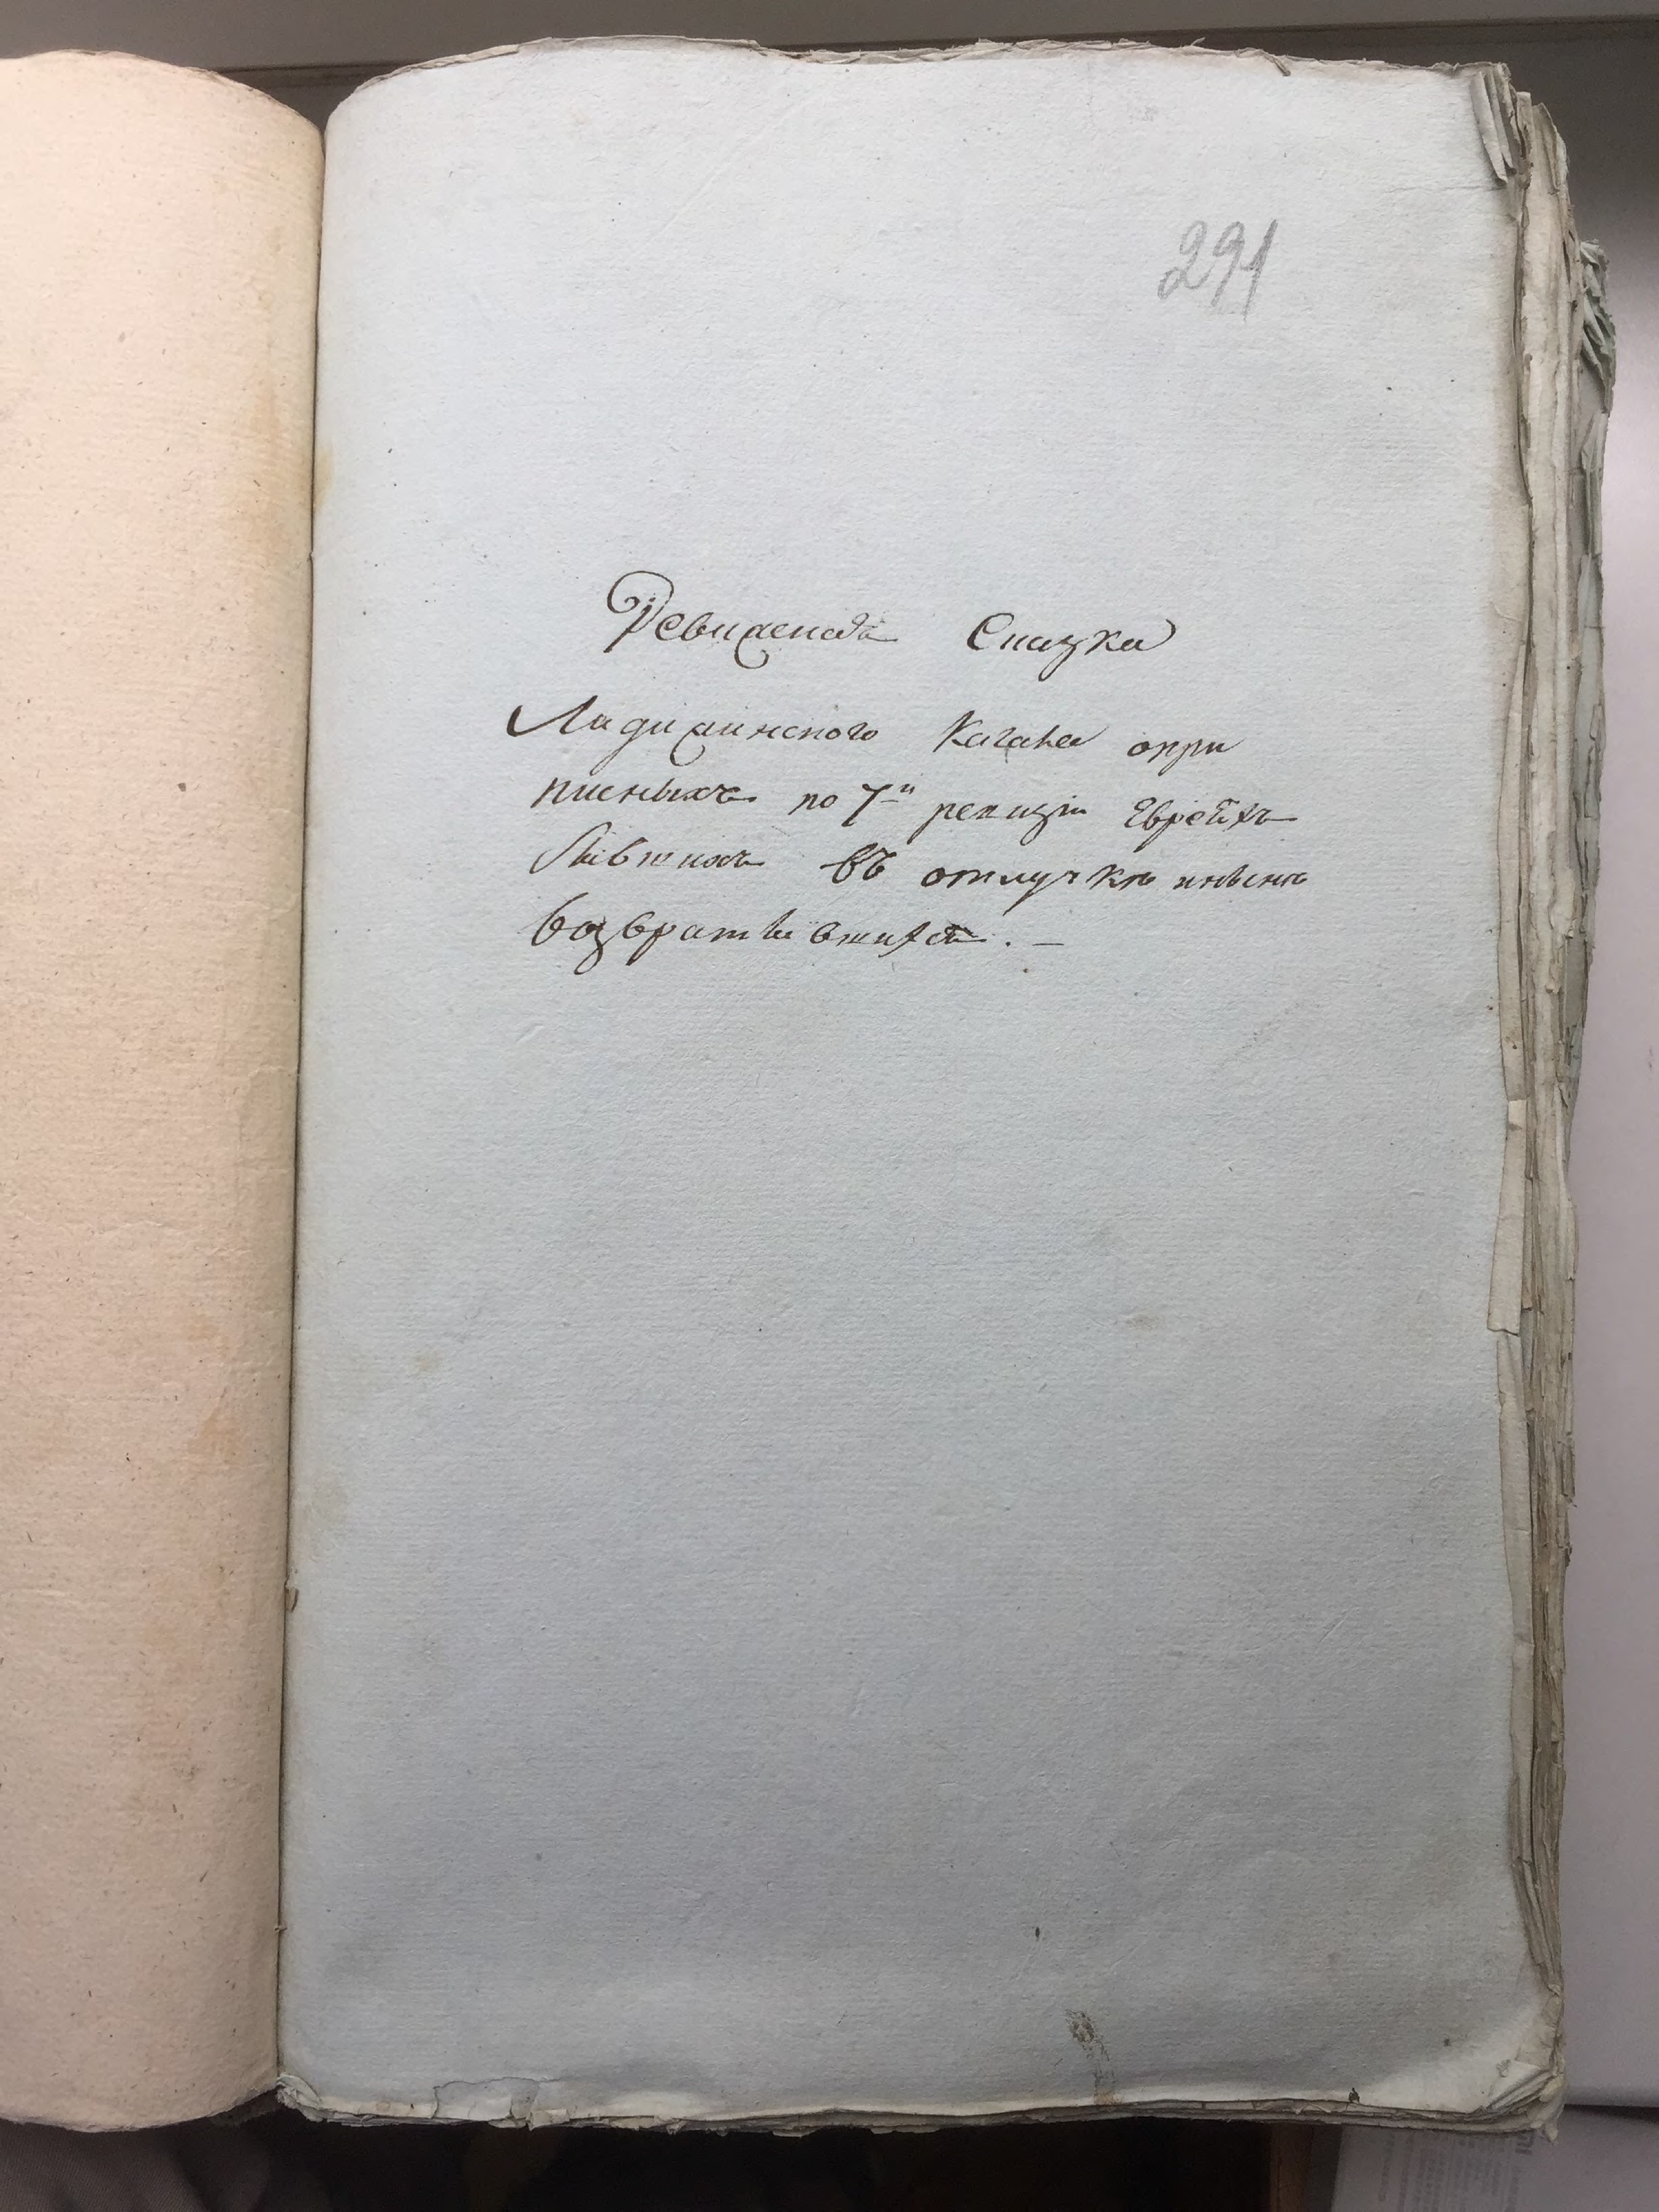 291
Ревижская Сказка
Ладижинского Кагала опри
писныхъ по 7-й ревизіи Евреяхъ
бывшихъ въ отлучкѣ иныне
возвратившихся. —